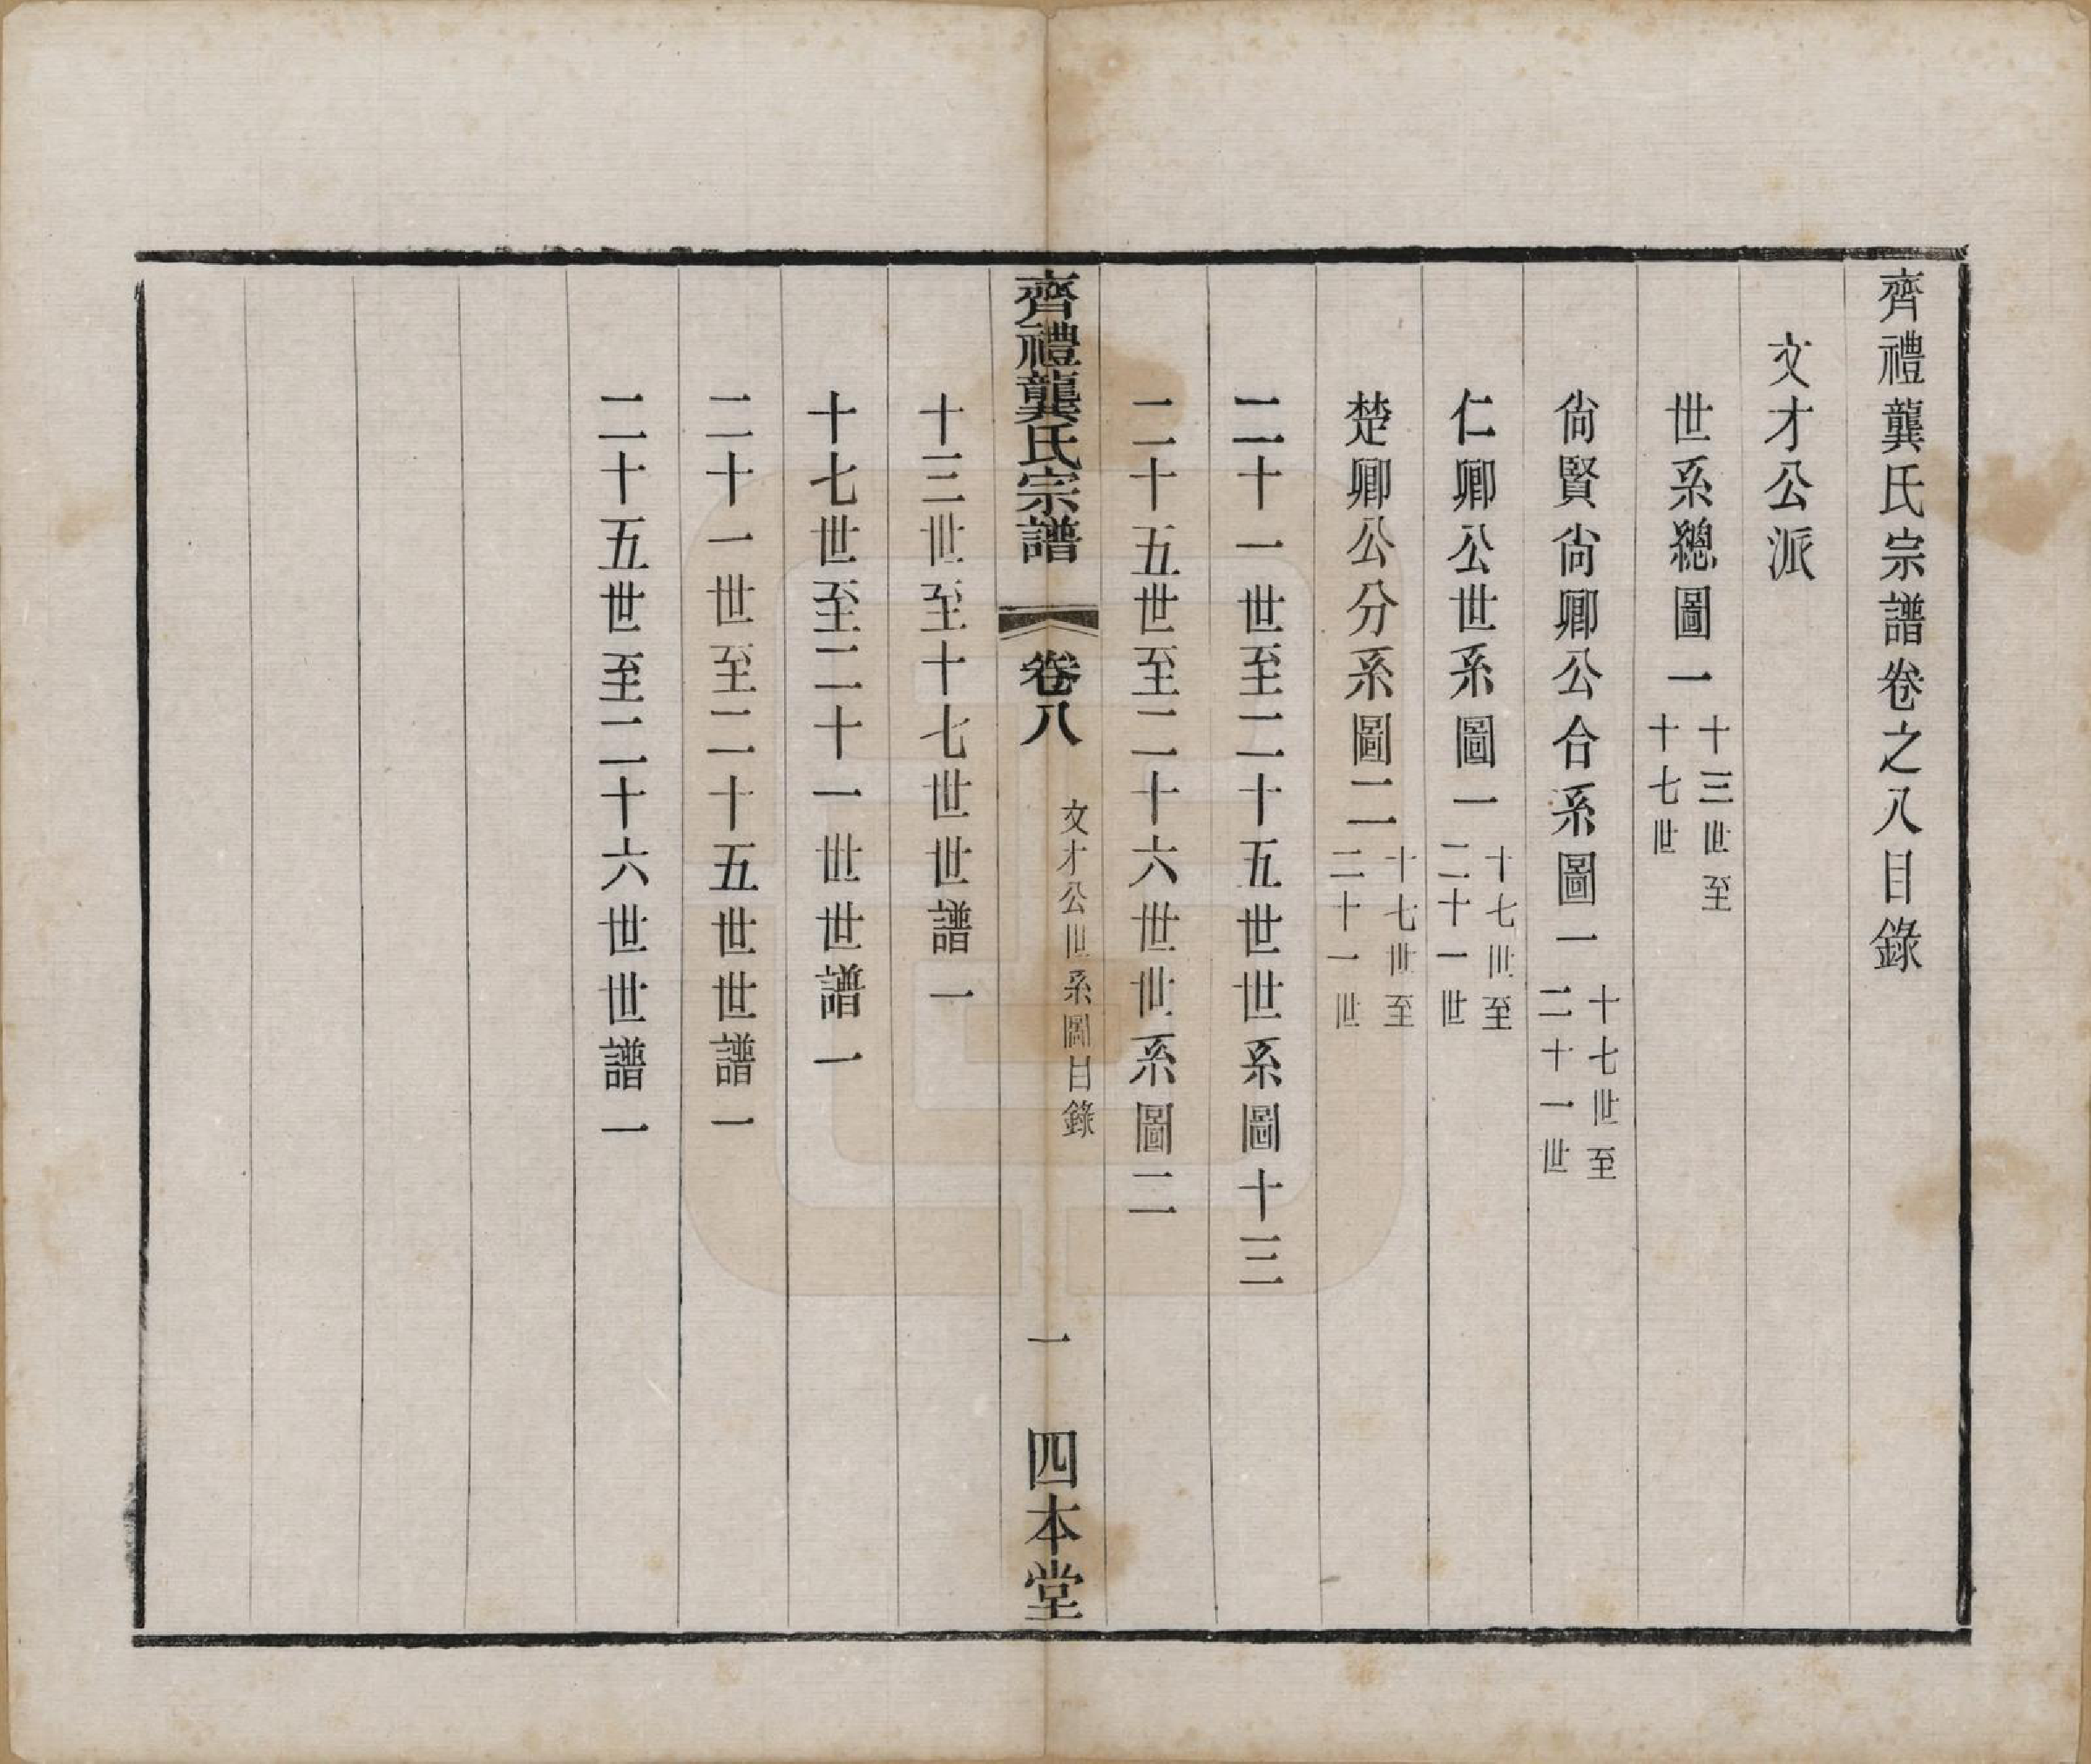 齊禮龔氏宗譜卷之八目錄
文才公派
世系總圖一 十三世至
十七世
尙賢尙卿公合系圖一 十七世至
二十一世
仁卿公世系圖一 十七世至
二十一世
楚卿公分系圖二 十七世至
二十一世
二十一世至二十五世世系圖十三
二十五世至二十六世世系圖二
齊禮龔氏宗譜 卷八 文才公世系圖目錄 一 四本堂
十三世至十七世世譜一
十七世至二十一世世譜一
二十一世至二十五世世譜一
二十五世至二十六世世譜一